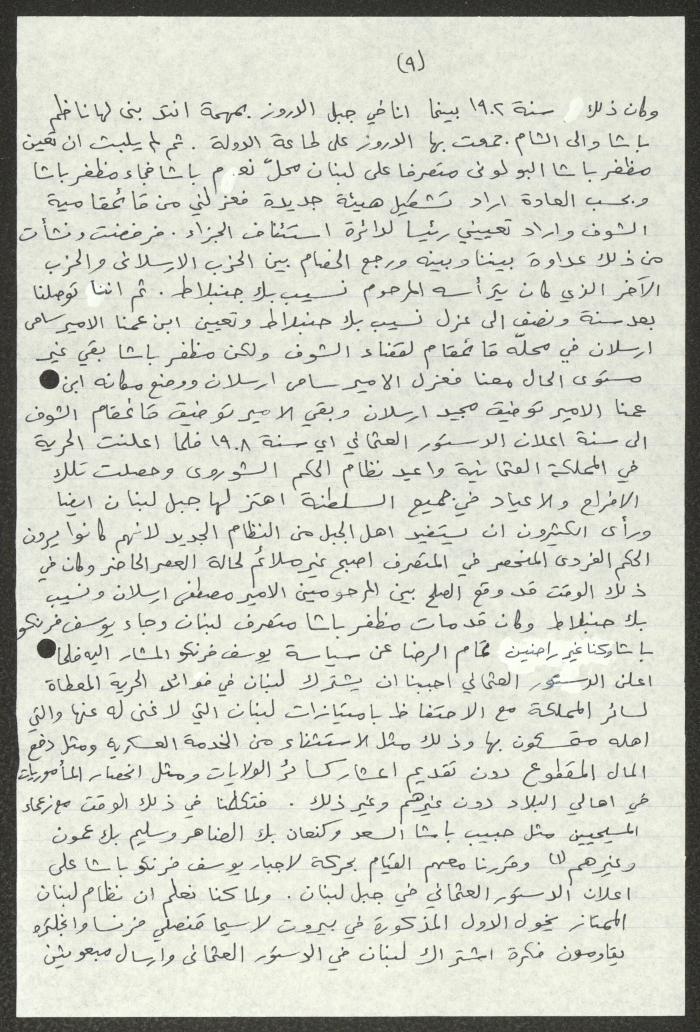 (٩)
وكان ذلك سنة ١٩٠٢ بينما انا في جبل الدروز بمهمة انتدبني لها ناظم
باشا والى الشام جمعت بها الدروز على طاعة الدولة . ثم لم يلبث ان تعين
مظفر باشا البولونى متصرفا على لبنان محلّ نعوم باشا فجاء مظفر باشا
وبحسب العادة اراد تشكيل هيئة جديدة فعزلني من قائمقامية
الشوف واراد تعييني رئيساً لدائرة استئناف الجزاء . فرفضت ونشأت
من ذلك عداوة بيننا وبينه ورجع الخصام بين الحزب الارسلانى والحزب
الآخر الذي كان يترأسه المرحوم نسيب بك جنبلاط . ثم اننا توصلنا
بعد سنة ونصف الى عزل نسيب بك جنبلاط وتعيين ابن عمنا الامير سامى
ارسلان في محلّه قائمقام لقضاء الشوف ولكن مظفر باشا بقي غير
مستوى الحال معنا فعزل الامير سامى ارسلان ووضع مكانه ابن
عمنا الامير توفيق مجيد ارسلان وبقي الامير توفيق قائمقام الشوف
الى سنة اعلان الدستور العثماني اي سنة ١٩٠٨ فلما اعلنت الحرية
في المملكة العثمانية واعيد نظام الحكم الشوروى وحصلت تلك
الافراح والاعياد في جميع السلطنة اهتز لها جبل لبنان ايضا
ورأى الكثيرون ان يستفيد اهل الجبل من النظام الجديد لانهم كانوا يرون
الحكم الفردى المنحصر في المتصرف اصبح غير ملائم لحالة العصر الحاضر وكان في
ذلك الوقت قد وقع الصلح بين المرحومين الامير مصطفى ارسلان ونسيب
بك جنبلاط وكان قد مات مظفر باشا متصرف لبنان وجاء يوسف فرنكو
باشا وكنا غير راضين تمام الرضا عن سياسة يوسف فرنكو المشار اليه فلما
اعلن الدستور العثماني احببنا ان يشترك لبنان في فوائد الحرية المعطاة
لسائر المملكة مع الاحتفاظ بامتيازات لبنان التي لا غنى له عنها والتي
اهله متمسكون بها وذلك مثل الاستثناء من الخدمة العسكرية ومثل دفع
المال المقطوع دون تقديم اعشار كسائر الولايات ومثل انحصار المأموريات
في اهالي البلاد دون غيرهم وغير ذلك . فتكلمنا في ذلك الوقت مع زعماء
المسيحيين مثل حبيب باشا السعد وكنعان بك الضاهر وسليم بك عمون
وغيرهم (١) وقررنا معهم القيام بحركة لاجبار يوسف فرنكو باشا على
اعلان الدستور العثماني في جبل لبنان . ولما كنا نعلم ان نظام لبنان
الممتاز يخول الدول المذكورة في بيروت لاسيما قنصلي فرنسا وانجلتره
يقاومون فكرة اشتراك لبنان في الدستور العثمانى وارسال مبعوثين